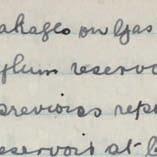 akages on Gas
ylum reservo
previous rep
eservoir at